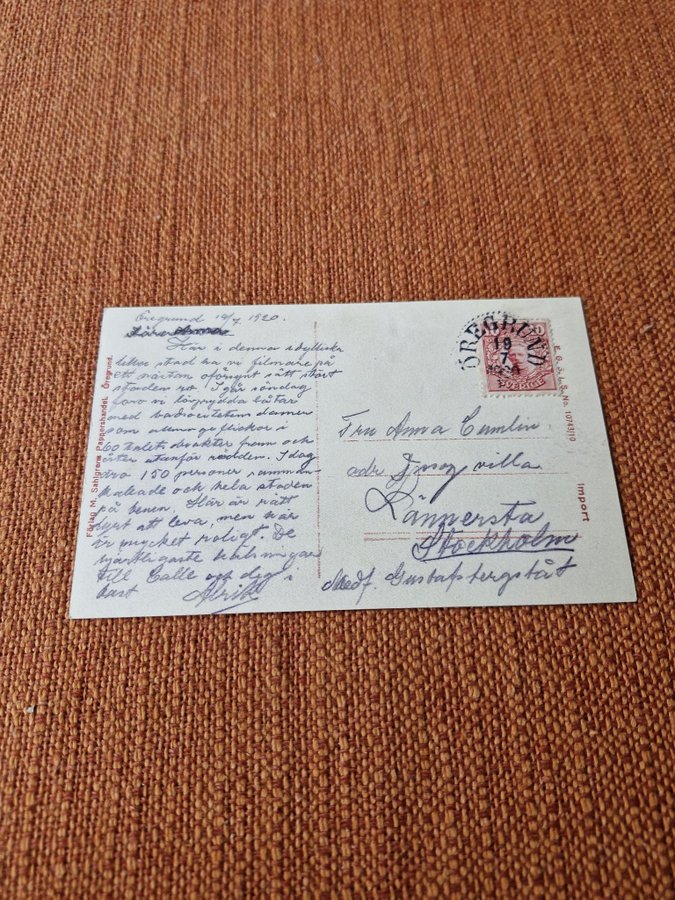 Öregrund 19/7 1920.
Kära Anna
Här i denna idylliska
lilla stad ha vi filmare på
ett nästan oförsynt sätt stört
stadens ro. I går söndag
foro vi lövprydda båtar
med
som allmogeflickor i
60 talets dräkter fram och
åter utanför staden. I dag
dro 150 personer samman-
kallade och hela staden
på benen. Här är rätt
dyrt att leva, men här
är mycket roligt. De
hjärtligaste hälsningar
till Calle och dig i
hast Alrik
Fru Anna Cumlin
adr villa
Lännersta
Stockholm
Medf. Gustafsbergsbåt
ÖREGRUND
19
7
1920
SVERIGE
Förlag M. Sahlgrens Pappershandel. Öregrund.
No. 10743/10
Import